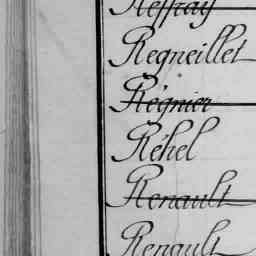 Reffray
Regneillet
Régnier
Réhel
Renault
Renault